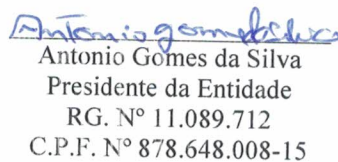 Antonio gomes da Silva
Antonio Gomes da Silva
Presidente da Entidade
RG. Nº 11.089.712
C.P.F. Nº 878.648.008-15